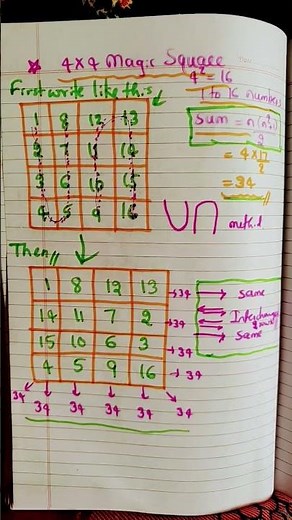 4×4 Magic Square
4² = 16
First write like this
1 to 16 numbers
1 8 12 13
2 7 11 14
3 6 10 15
4 5 9 16
Sum = n(n²+1)/2
= 4×17/2
= 34
∪∩ method
Then
1 8 12 13 → 34
14 11 7 2 → 34
15 10 6 3 → 34
4 5 9 16 → 34
34 34 34 34 34 34
→ same
Interchange
→ same